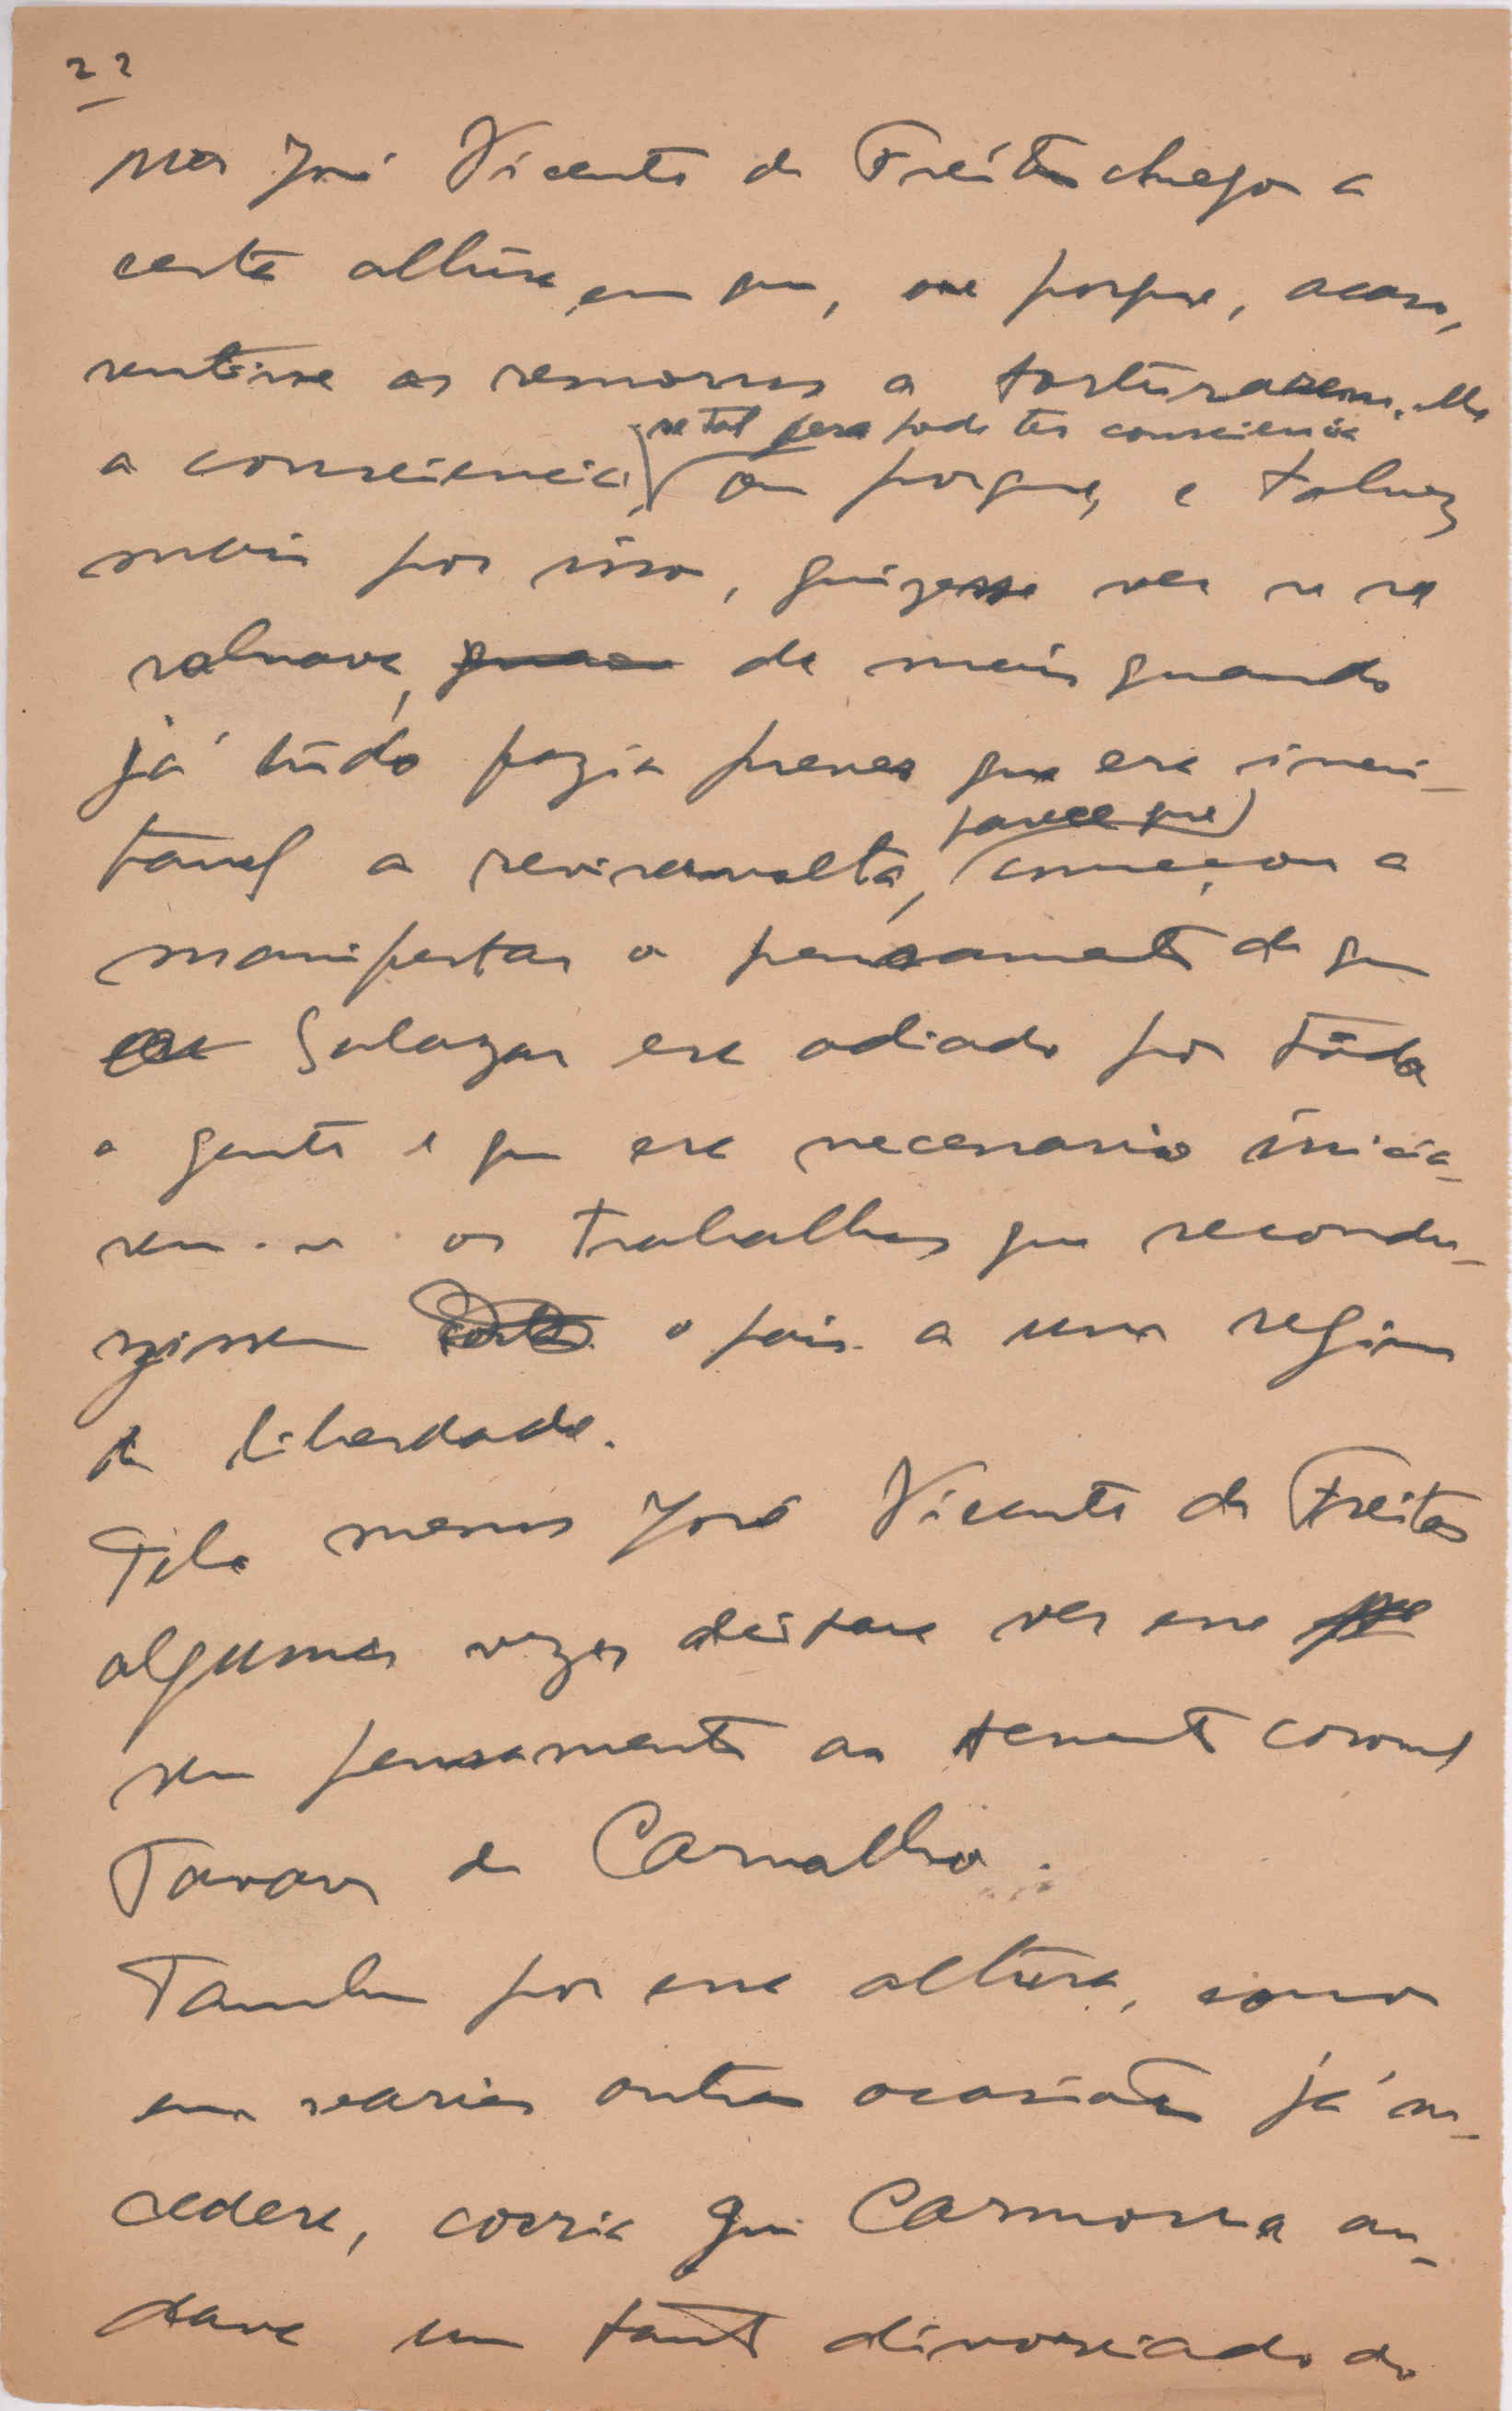 22
Mas José Vicente de Freitas chegou a
certa altura em que, ou porque, acaso,
sentisse os remorsos a torturarem-lhe
se tal fera pode ter consciencia
a consciencia, ou porque, e talvez
mais por isso, quizesse ver se se
salvava, de mais quando
já tudo fazia prever que era inevi-
parece que
tavel a reviravolta, começou a
manifestar o pensamento de que
Salazar era odiado por tôda
a gente e que era necessario inicia-
rem-se os trabalhos que recondu-
zissem o pais a um regimen
de liberdade.
Pelo menos José Vicente de Freitas
algumas vezes deixara ver esse
seu pensamento ao tenente coronel
Tavares de Carvalho.
Tambem por essa altura, como
em varias outras ocasiões já su-
cedera, corria que Carmona an-
dava um tanto divorciado do